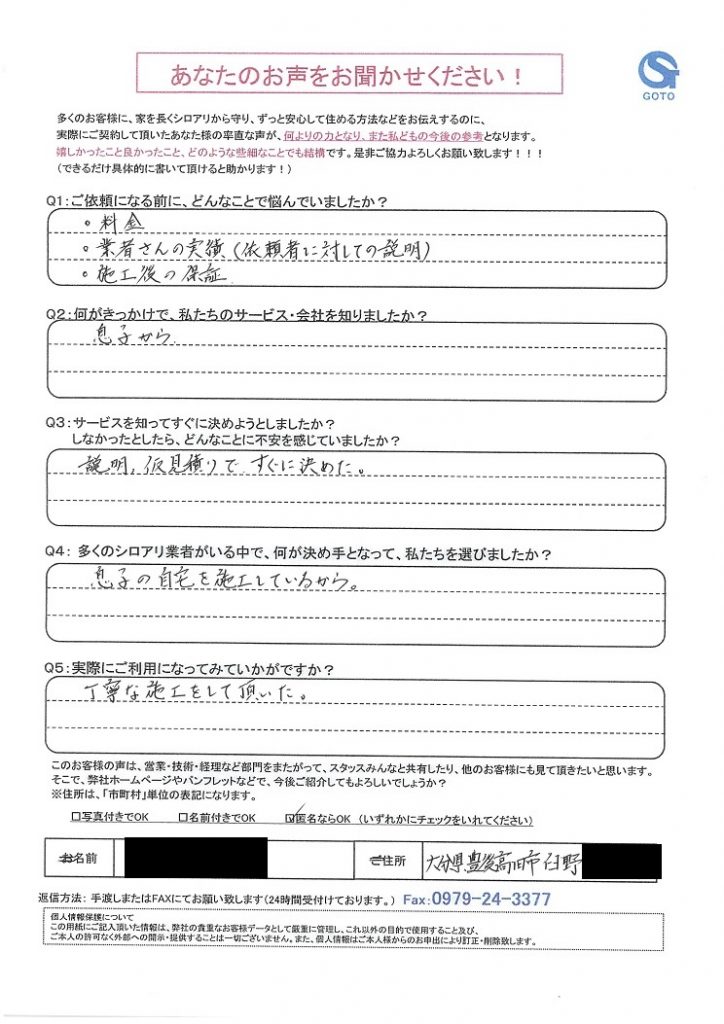 あなたのお声をお聞かせください！
GOTO
多くのお客様に、家を長くシロアリから守り、ずっと安心して住める方法などをお伝えするのに、
実際にご契約して頂いたあなた様の率直な声が、何よりの力となり、また私どもの今後の参考となります。
嬉しかったこと良かったこと、どのような些細なことでも結構です。是非ご協力よろしくお願い致します！！！
（できるだけ具体的に書いて頂けると助かります！）
Q1：ご依頼になる前に、どんなことで悩んでいましたか？
・料金
・業者さんの実績（依頼者に対しての説明）
・施工後の保証
Q2：何がきっかけで、私たちのサービス・会社を知りましたか？
息子から
Q3：サービスを知ってすぐに決めようとしましたか？
しなかったとしたら、どんなことに不安を感じていましたか？
説明，仮見積りで すぐに決めた。
Q4： 多くのシロアリ業者がいる中で、何が決め手となって、私たちを選びましたか？
息子の自宅を施工しているから。
Q5：実際にご利用になってみていかがですか？
丁寧な施工をして頂いた。
このお客様の声は、営業・技術・経理など部門をまたがって、スタッスみんなと共有したり、他のお客様にも見て頂きたいと思います。
そこで、弊社ホームページやパンフレットなどで、今後ご紹介してもよろしいでしょうか？
※住所は、「市町村」単位の表記になります。
□写真付きでOK □名前付きでOK ☑匿名ならOK （いずれかにチェックをいれてください）
お名前 ご住所 大分県豊後高田市臼野
返信方法： 手渡しまたはFAXにてお願い致します（24時間受付けております。） Fax：0979-24-3377
個人情報保護について
この用紙にご記入頂いた情報は、弊社の貴重なお客様データとして厳重に管理し、これ以外の目的で使用すること及び、
ご本人の許可なく外部への開示・提供することは一切ございません。また、個人情報はご本人様からのお申出により訂正・削除致します。